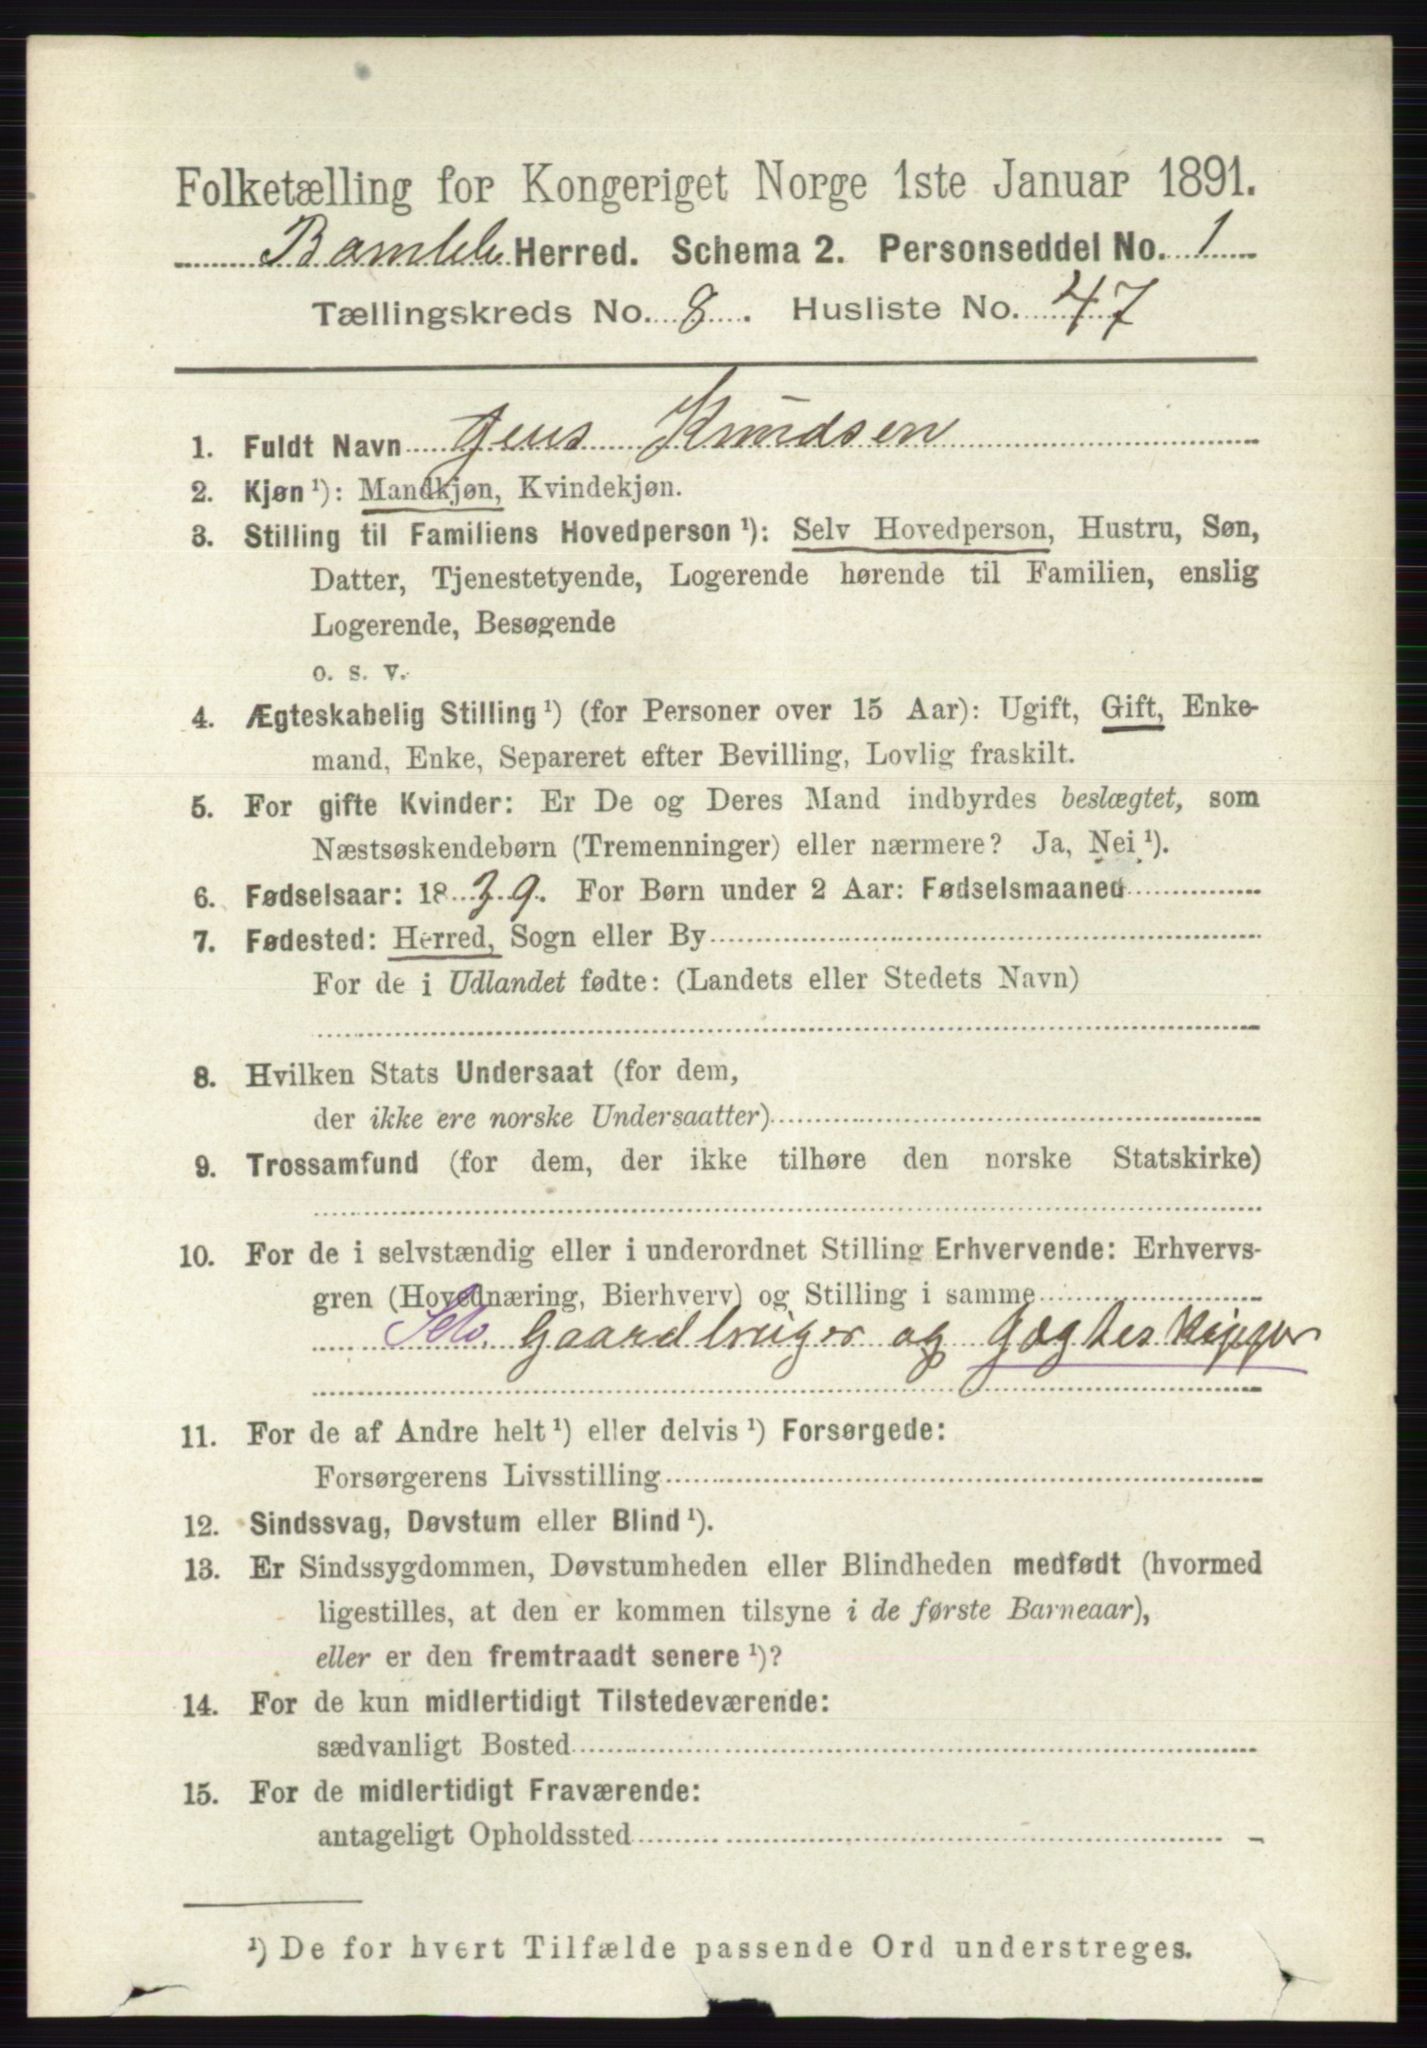 Folketælling for Kongeriget Norge 1ste Januar 1891.
Bamble Herred. Schema 2. Personseddel No. 1
Tællingskreds No. 8. Husliste No. 47
1. Fuldt Navn Jens Knudsen
2. Kjøn ¹): Mandkjøn, Kvindekjøn.
3. Stilling til Familiens Hovedperson ¹): Selv Hovedperson, Hustru, Søn,
Datter, Tjenestetyende, Logerende hørende til Familien, enslig
Logerende, Besøgende
o. s. v.
4. Ægteskabelig Stilling ¹) (for Personer over 15 Aar): Ugift, Gift, Enke-
mand, Enke, Separeret efter Bevilling, Lovlig fraskilt.
5. For gifte Kvinder: Er De og Deres Mand indbyrdes beslægtet, som
Næstsøskendebørn (Tremenninger) eller nærmere? Ja, Nei ¹).
6. Fødselsaar: 1839. For Børn under 2 Aar: Fødselsmaaned
7. Fødested: Herred, Sogn eller By
For de i Udlandet fødte: (Landets eller Stedets Navn)
8. Hvilken Stats Undersaat (for dem,
der ikke ere norske Undersaatter)
9. Trossamfund (for dem, der ikke tilhøre den norske Statskirke)
10. For de i selvstændig eller i underordnet Stilling Erhvervende: Erhvervs-
gren (Hovednæring, Bierhverv) og Stilling i samme
Selv. Gaardbruger og Jægteskipper
11. For de af Andre helt ¹) eller delvis ¹) Forsørgede:
Forsørgerens Livsstilling
12. Sindssvag, Døvstum eller Blind ¹).
13. Er Sindssygdommen, Døvstumheden eller Blindheden medfødt (hvormed
ligestilles, at den er kommen tilsyne i de første Barneaar),
eller er den fremtraadt senere ¹)?
14. For de kun midlertidigt Tilstedeværende:
sædvanligt Bosted
15. For de midlertidigt Fraværende:
antageligt Opholdssted
¹) De for hvert Tilfælde passende Ord understreges.